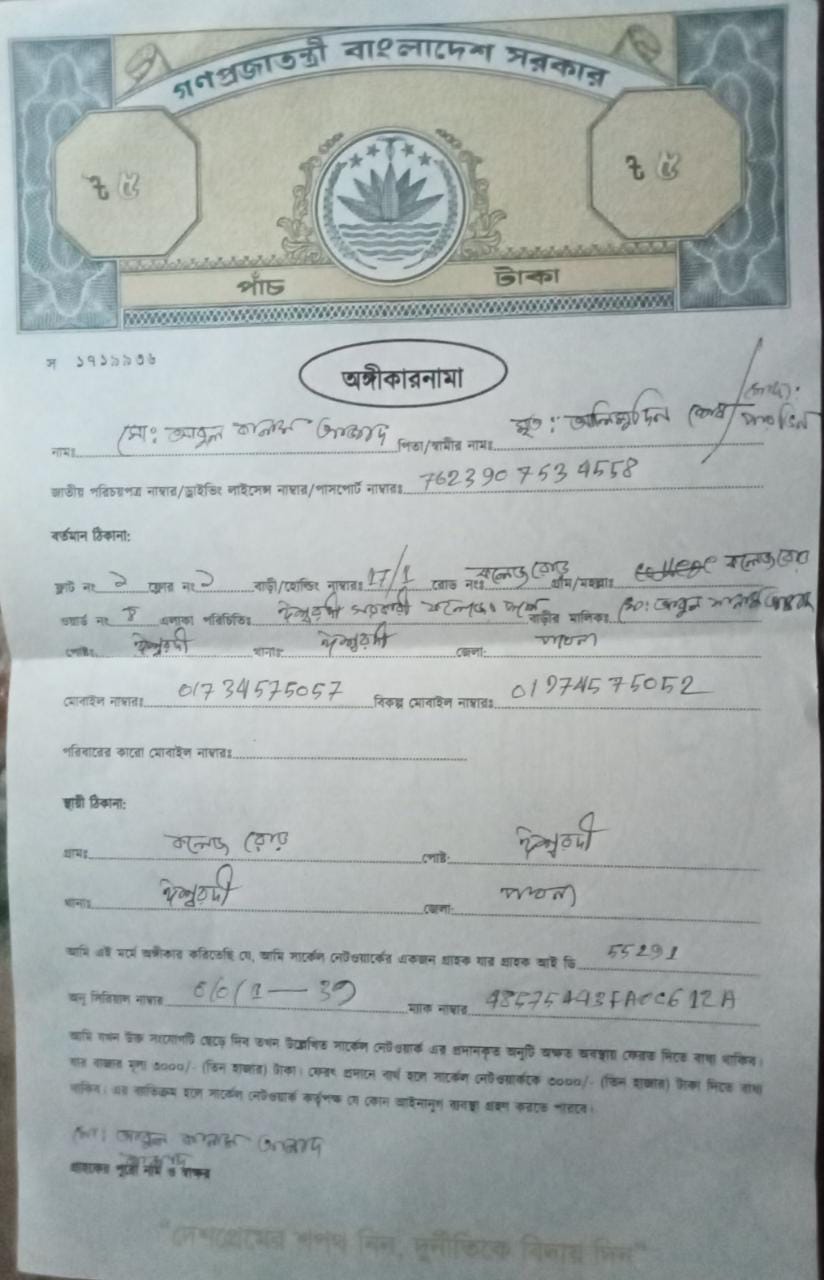 গণপ্রজাতন্ত্রী বাংলাদেশ সরকার
৳ ৫ ৳ ৫
পাঁচ টাকা
অঙ্গীকারনামা
নামঃ মো: আবুল কালাম আজাদ পিতা/স্বামীর নামঃ মৃত:
জাতীয় পরিচয়পত্র নাম্বার/ড্রাইভিং লাইসেন্স নাম্বার/পাসপোর্ট নাম্বারঃ 7623907534558
বর্তমান ঠিকানা:
ফ্লাট নং ২ ফ্লোর নং ২ বাড়ী/হোল্ডিং নাম্বারঃ 17/1 রোড নংঃ কলেজ রোড গ্রাম/মহল্লাঃ কলেজ রোড
ওয়ার্ড নং এলাকা পরিচিতিঃ ঈশ্বরদী সরকারী কলেজ বাড়ীর মালিকঃ মো: আবুল কালাম আজাদ
পোষ্টঃ ঈশ্বরদী থানাঃ ঈশ্বরদী জেলা: পাবনা
মোবাইল নাম্বারঃ 01734575057 বিকল্প মোবাইল নাম্বারঃ 01974575052
পরিবারের কারো মোবাইল নাম্বারঃ
স্থায়ী ঠিকানা:
গ্রামঃ কলেজ রোড পোষ্ট: ঈশ্বরদী
থানাঃ ঈশ্বরদী জেলা: পাবনা
আমি এই মর্মে অঙ্গীকার করিতেছি যে, আমি সার্কেল নেটওয়ার্কের একজন গ্রাহক যার গ্রাহক আই ডি 55291
অনু সিরিয়াল নাম্বার ম্যাক নাম্বার 48575443FA0C612A
আমি যখন উক্ত সংযোগটি ছেড়ে দিব তখন উল্লেখিত সার্কেল নেটওয়ার্ক এর প্রদানকৃত অনুটি অক্ষত অবস্থায় ফেরত দিতে বাধ্য থাকিব।
যার বাজার মূল্য ৩০০০/- (তিন হাজার) টাকা। ফেরৎ প্রদানে ব্যর্থ হলে সার্কেল নেটওয়ার্ককে ৩০০০/- (তিন হাজার) টাকা দিতে বাধ্য
থাকিব। এর ব্যতিক্রম হলে সার্কেল নেটওয়ার্ক কর্তৃপক্ষ যে কোন আইনানুগ ব্যবস্থা গ্রহণ করতে পারবে।
মো: আবুল কালাম আজাদ
গ্রাহকের পুরো নাম ও স্বাক্ষর
"দেশপ্রেমের শপথ নিন, দুর্নীতিকে বিদায় দিন"